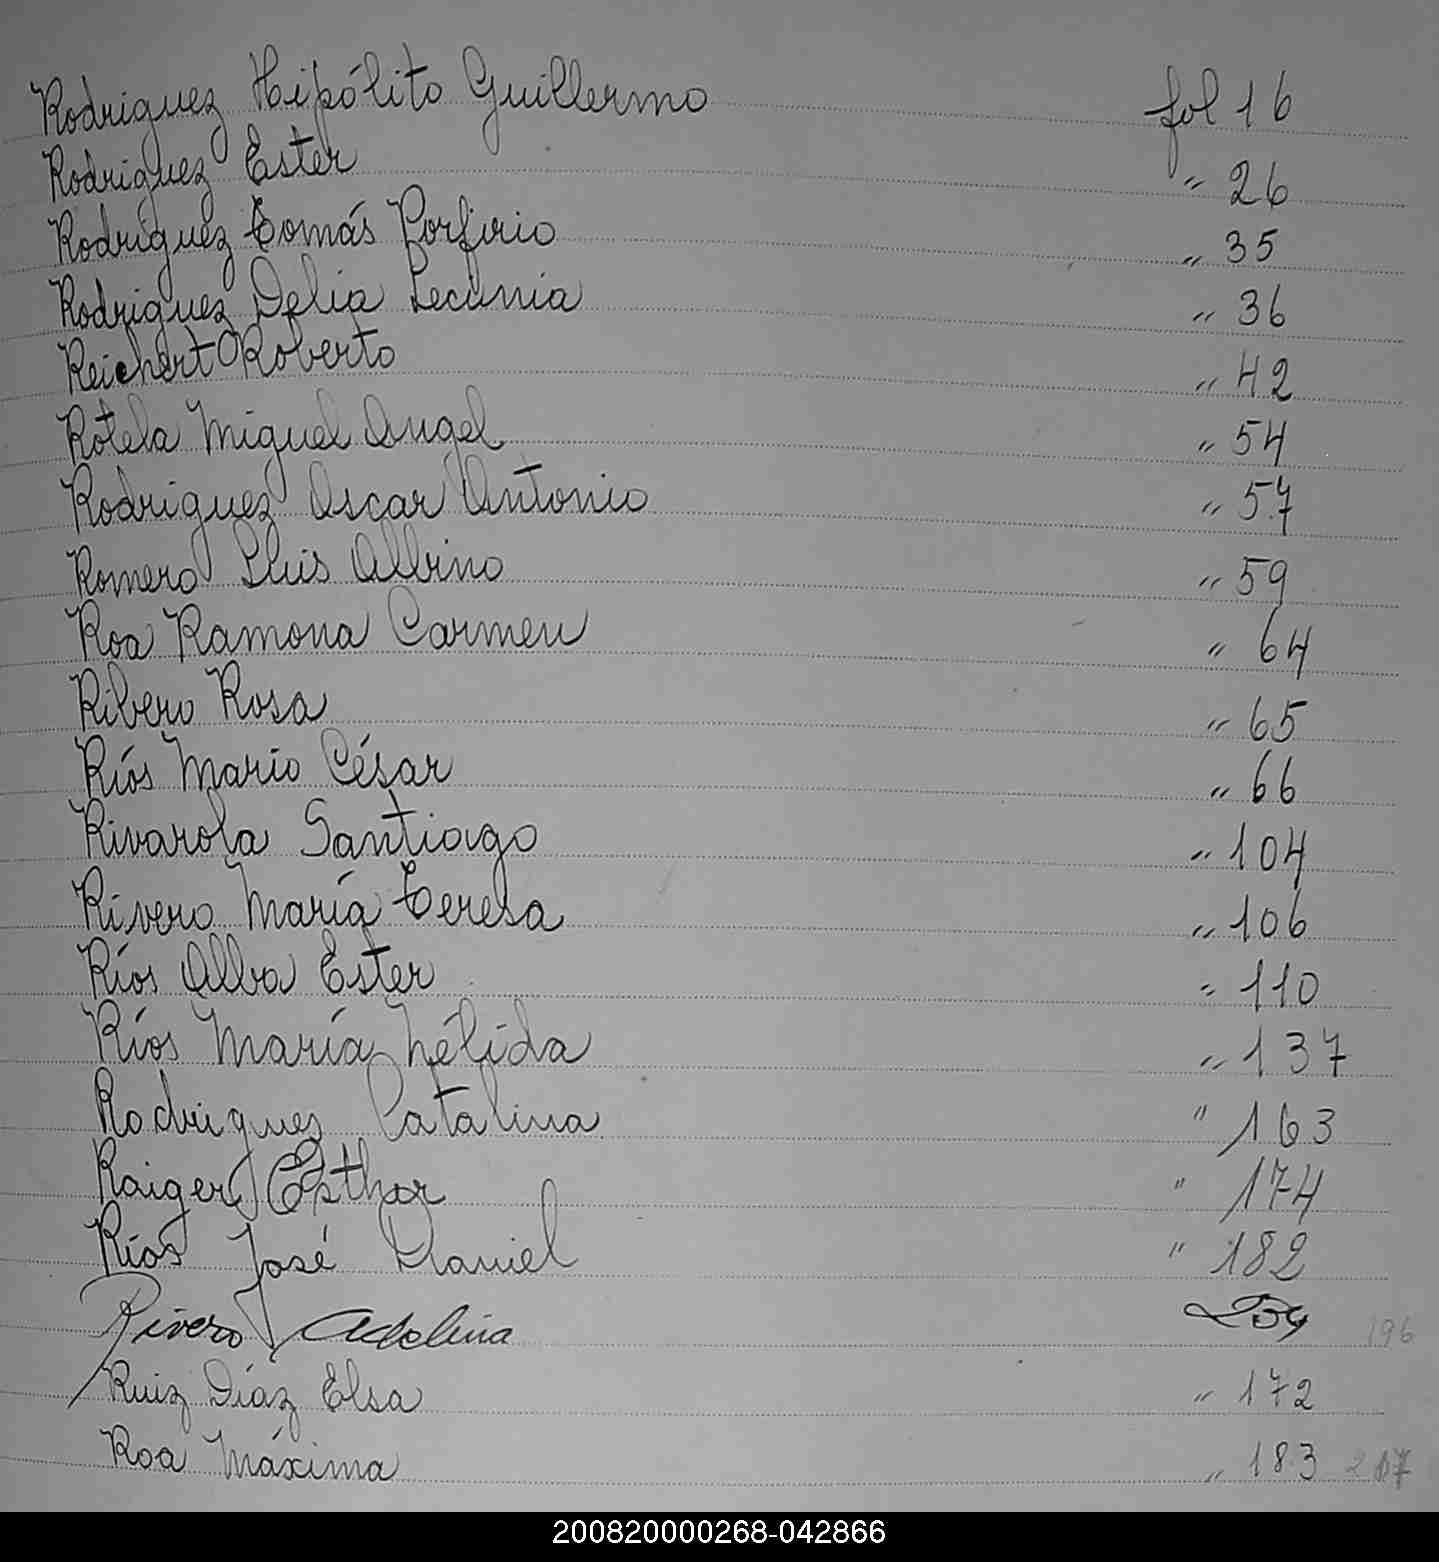 Rodriguez Hipólito Guillermo fol 16
Rodriguez Ester " 26
Rodriguez Tomás Porfirio " 35
Rodriguez Delia Lecinia " 36
Reichert Roberto " 42
Rotela Miguel Angel " 54
Rodriguez Oscar Antonio " 57
Romero Luis Albino " 59
Roa Ramona Carmen " 64
Ribero Rosa " 65
Ríos Mario César " 66
Rivarola Santiago " 104
Rivero María Teresa " 106
Ríos Alba Ester " 110
Ríos María Nélida " 137
Rodriguez Catalina " 163
Raiger Esther " 174
Ríos José Daniel " 182
Rivero Adelina 196
Ruiz Díaz Elsa " 172
Roa Máxima " 183 217
200820000268-042866